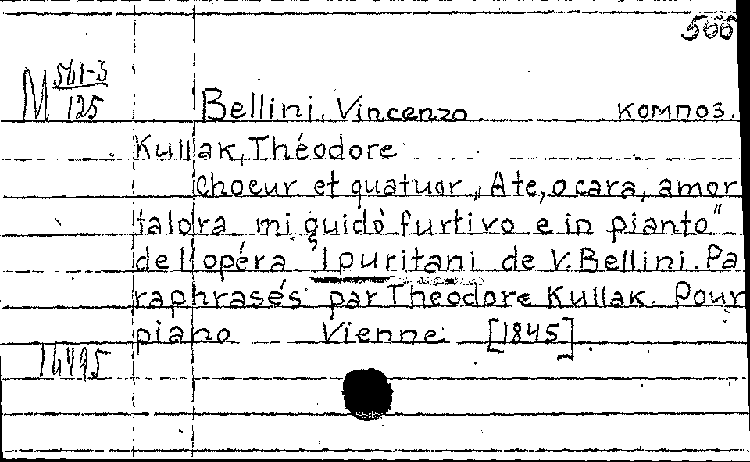 566
М 561-3/125
Bellini, Vincenzo композ.
Kullak, Théodore
Choeur et quatuor „Ate, o cara, amor
talora mi guidò furtivo e in pianto"
del'opéra "I puritani de V. Bellini. Pa
raphrasés par Theodore Kullak. Pour
piano Vienne [1845].